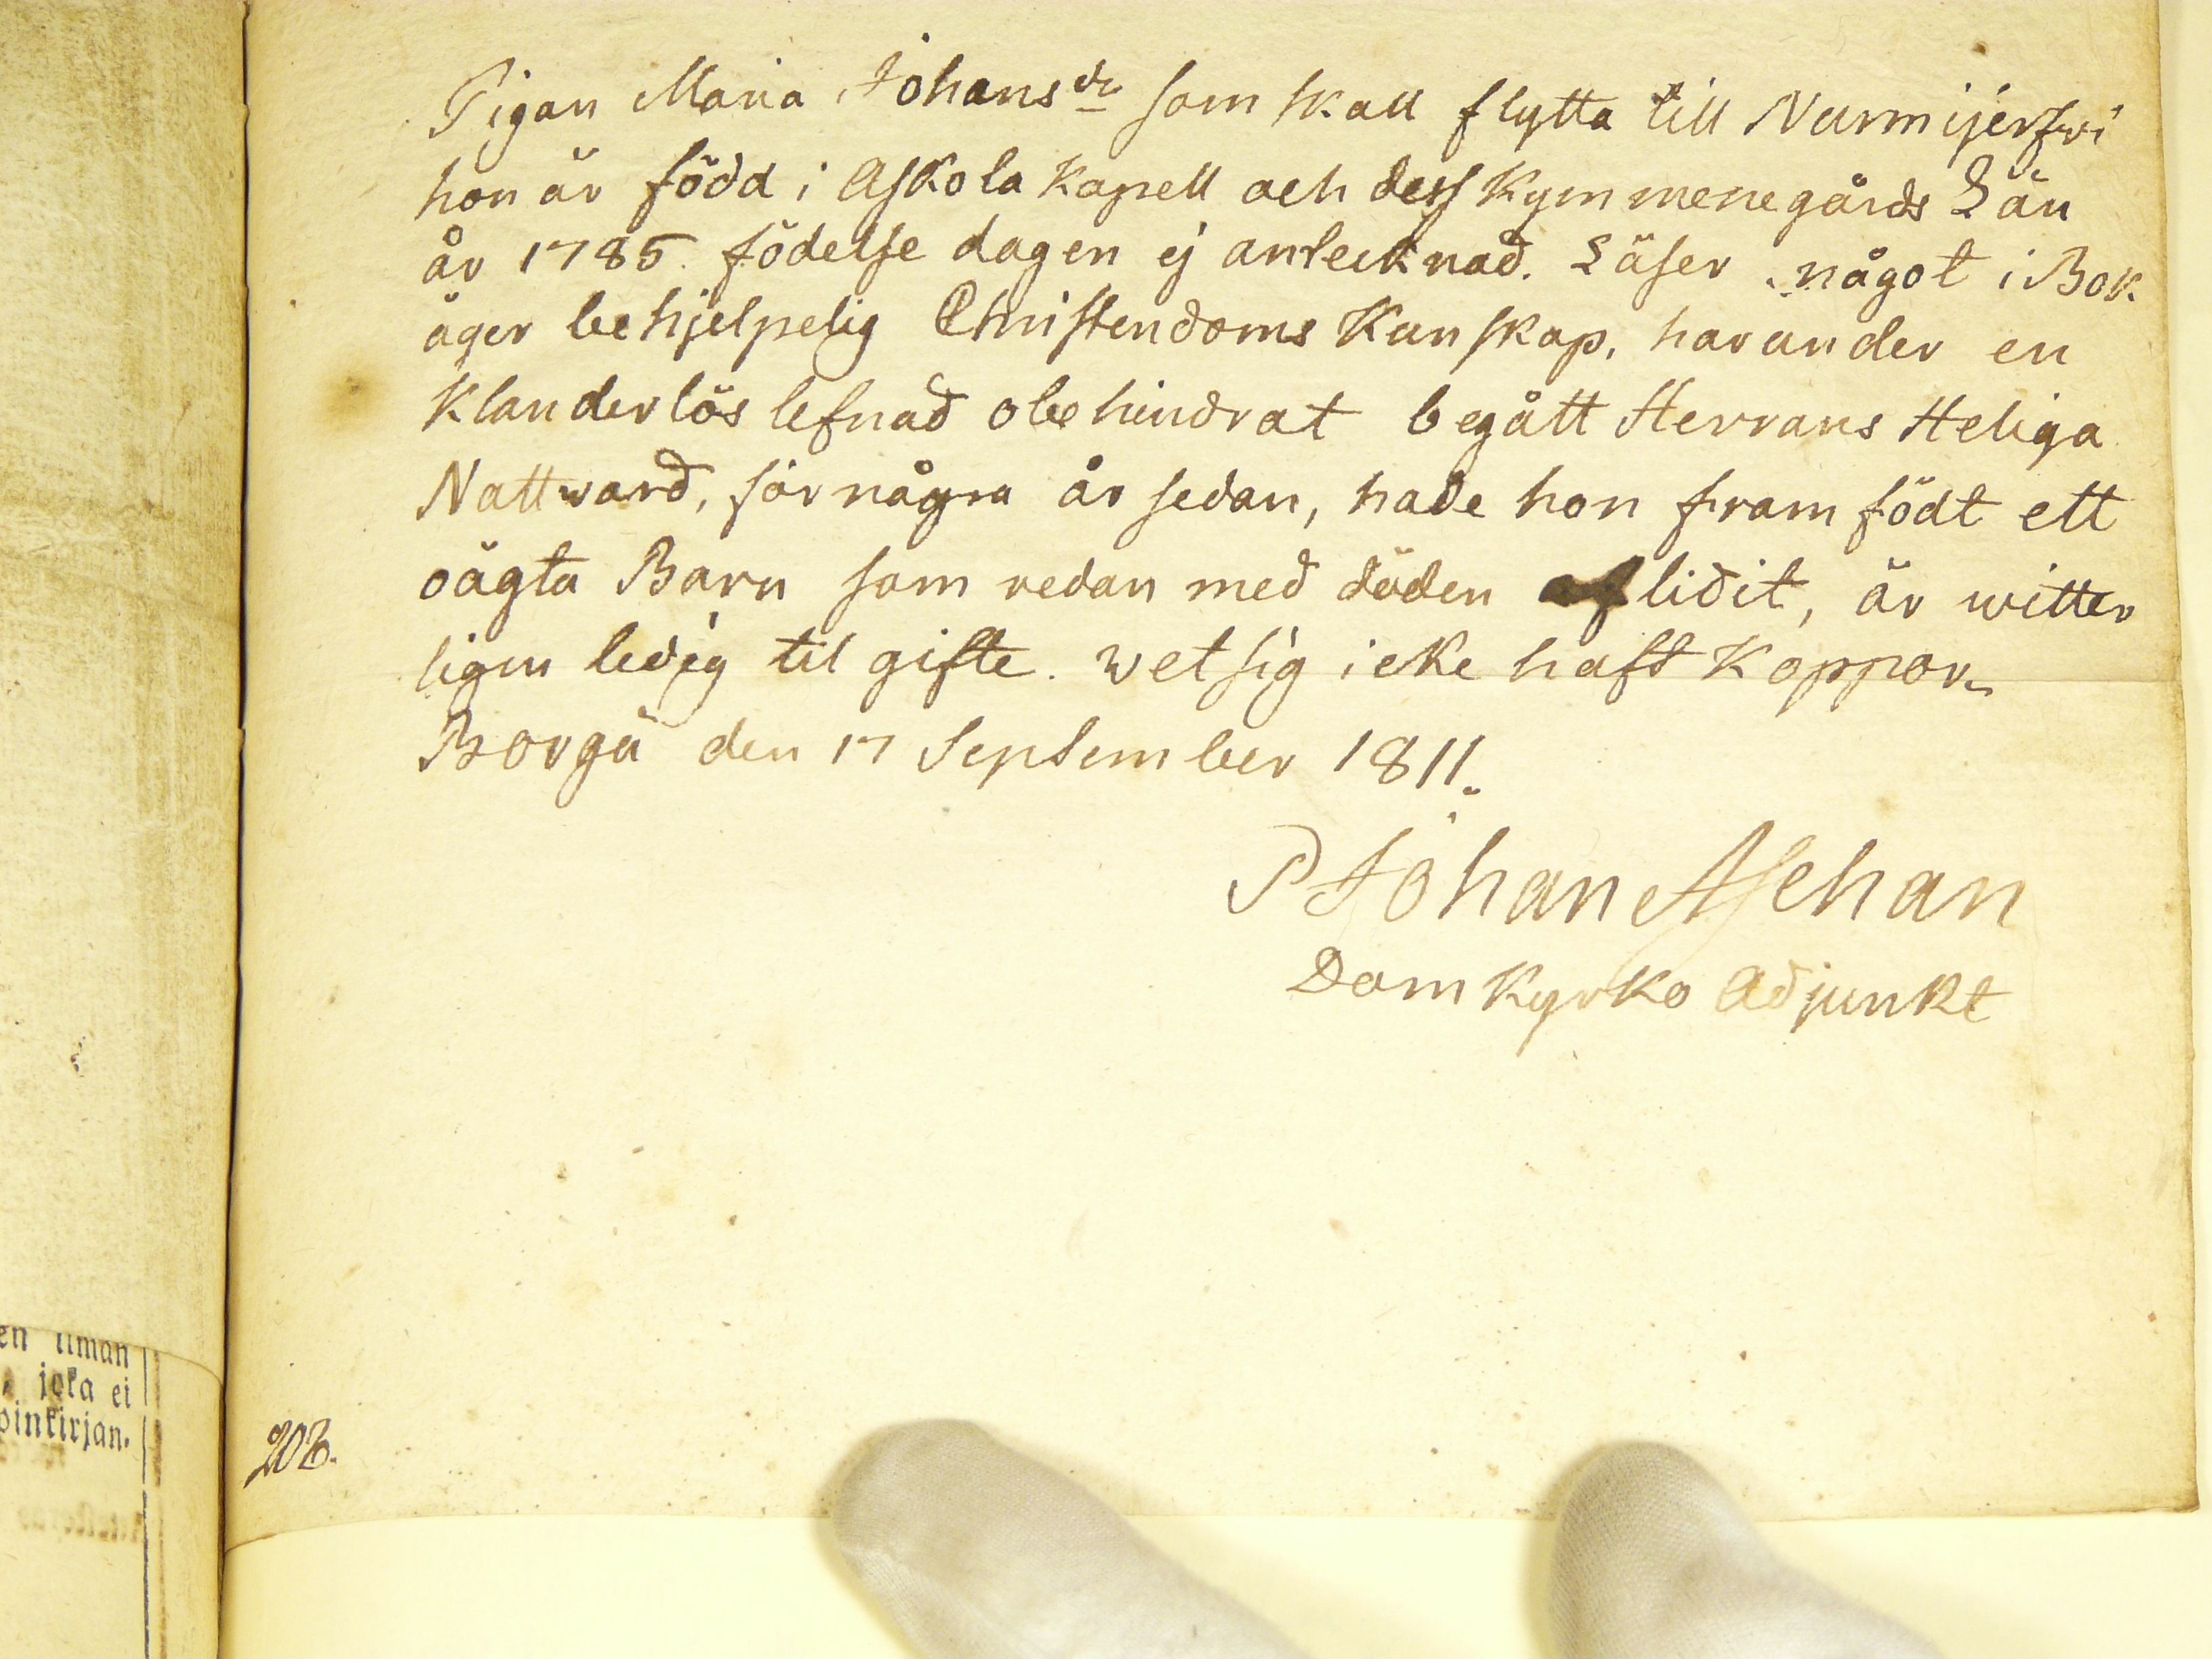 Pigan Maria Johansdr som skall flytta till Nurmijerfwi
hon är född i Askola Kapell och dess Kymmenegårds Län
år 1785. födelse dagen ej antecknad. Läser något i Bok
äger behjelpelig Christendoms Kunskap, har under en
Klanderlös lefnad obehindrat begått Herrans Heliga
Nattward, för några år sedan, hade hon framfödt ett
oägta Barn som redan med döden aflidit, är witter
ligen ledig til gifte. wet sig icke haft Koppor
Borgå den 17 September 1811.
P Johan Aschan
Domkyrko Adjunkt
en ilman
joka ei
oinkirjan.